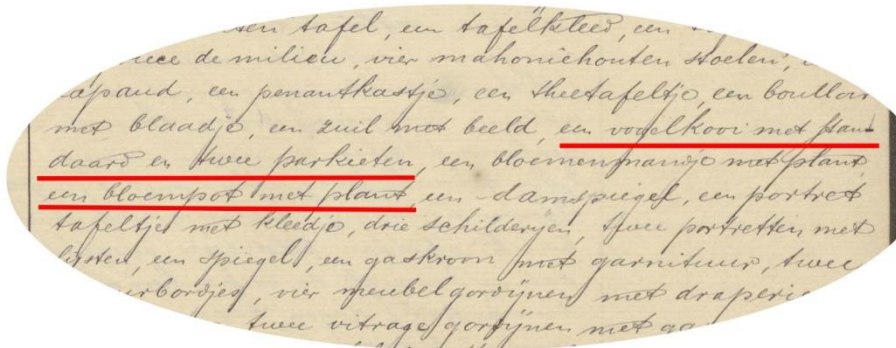 tafel, een tafelkleed, een
de milieu, vier mahoniehouten stoelen,
een penantkastje, een theetafeltje, een bouilloir
met blaadje, een zuil met beeld, een vogelkooi met stan-
daard en twee parkieten, een bloemenmandje met plant,
een bloempot met plant, een damspiegel, een portret
tafeltje met kleedje, drie schilderyen, twee portretten met
lysten, een spiegel, een gaskroon met garnituur, twee
vier meubelgordynen met
twee vitrage gordynen met